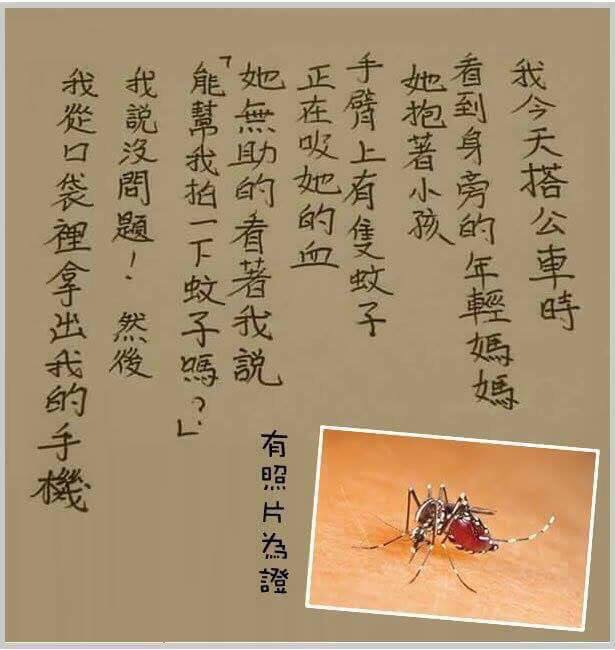 我今天搭公車時
看到身旁的年輕媽媽
她抱著小孩
手臂上有隻蚊子
正在吸她的血
她無助的看著我說
「能幫我拍一下蚊子嗎？」
我說沒問題！然後
我從口袋裡拿出我的手機
有照片為證